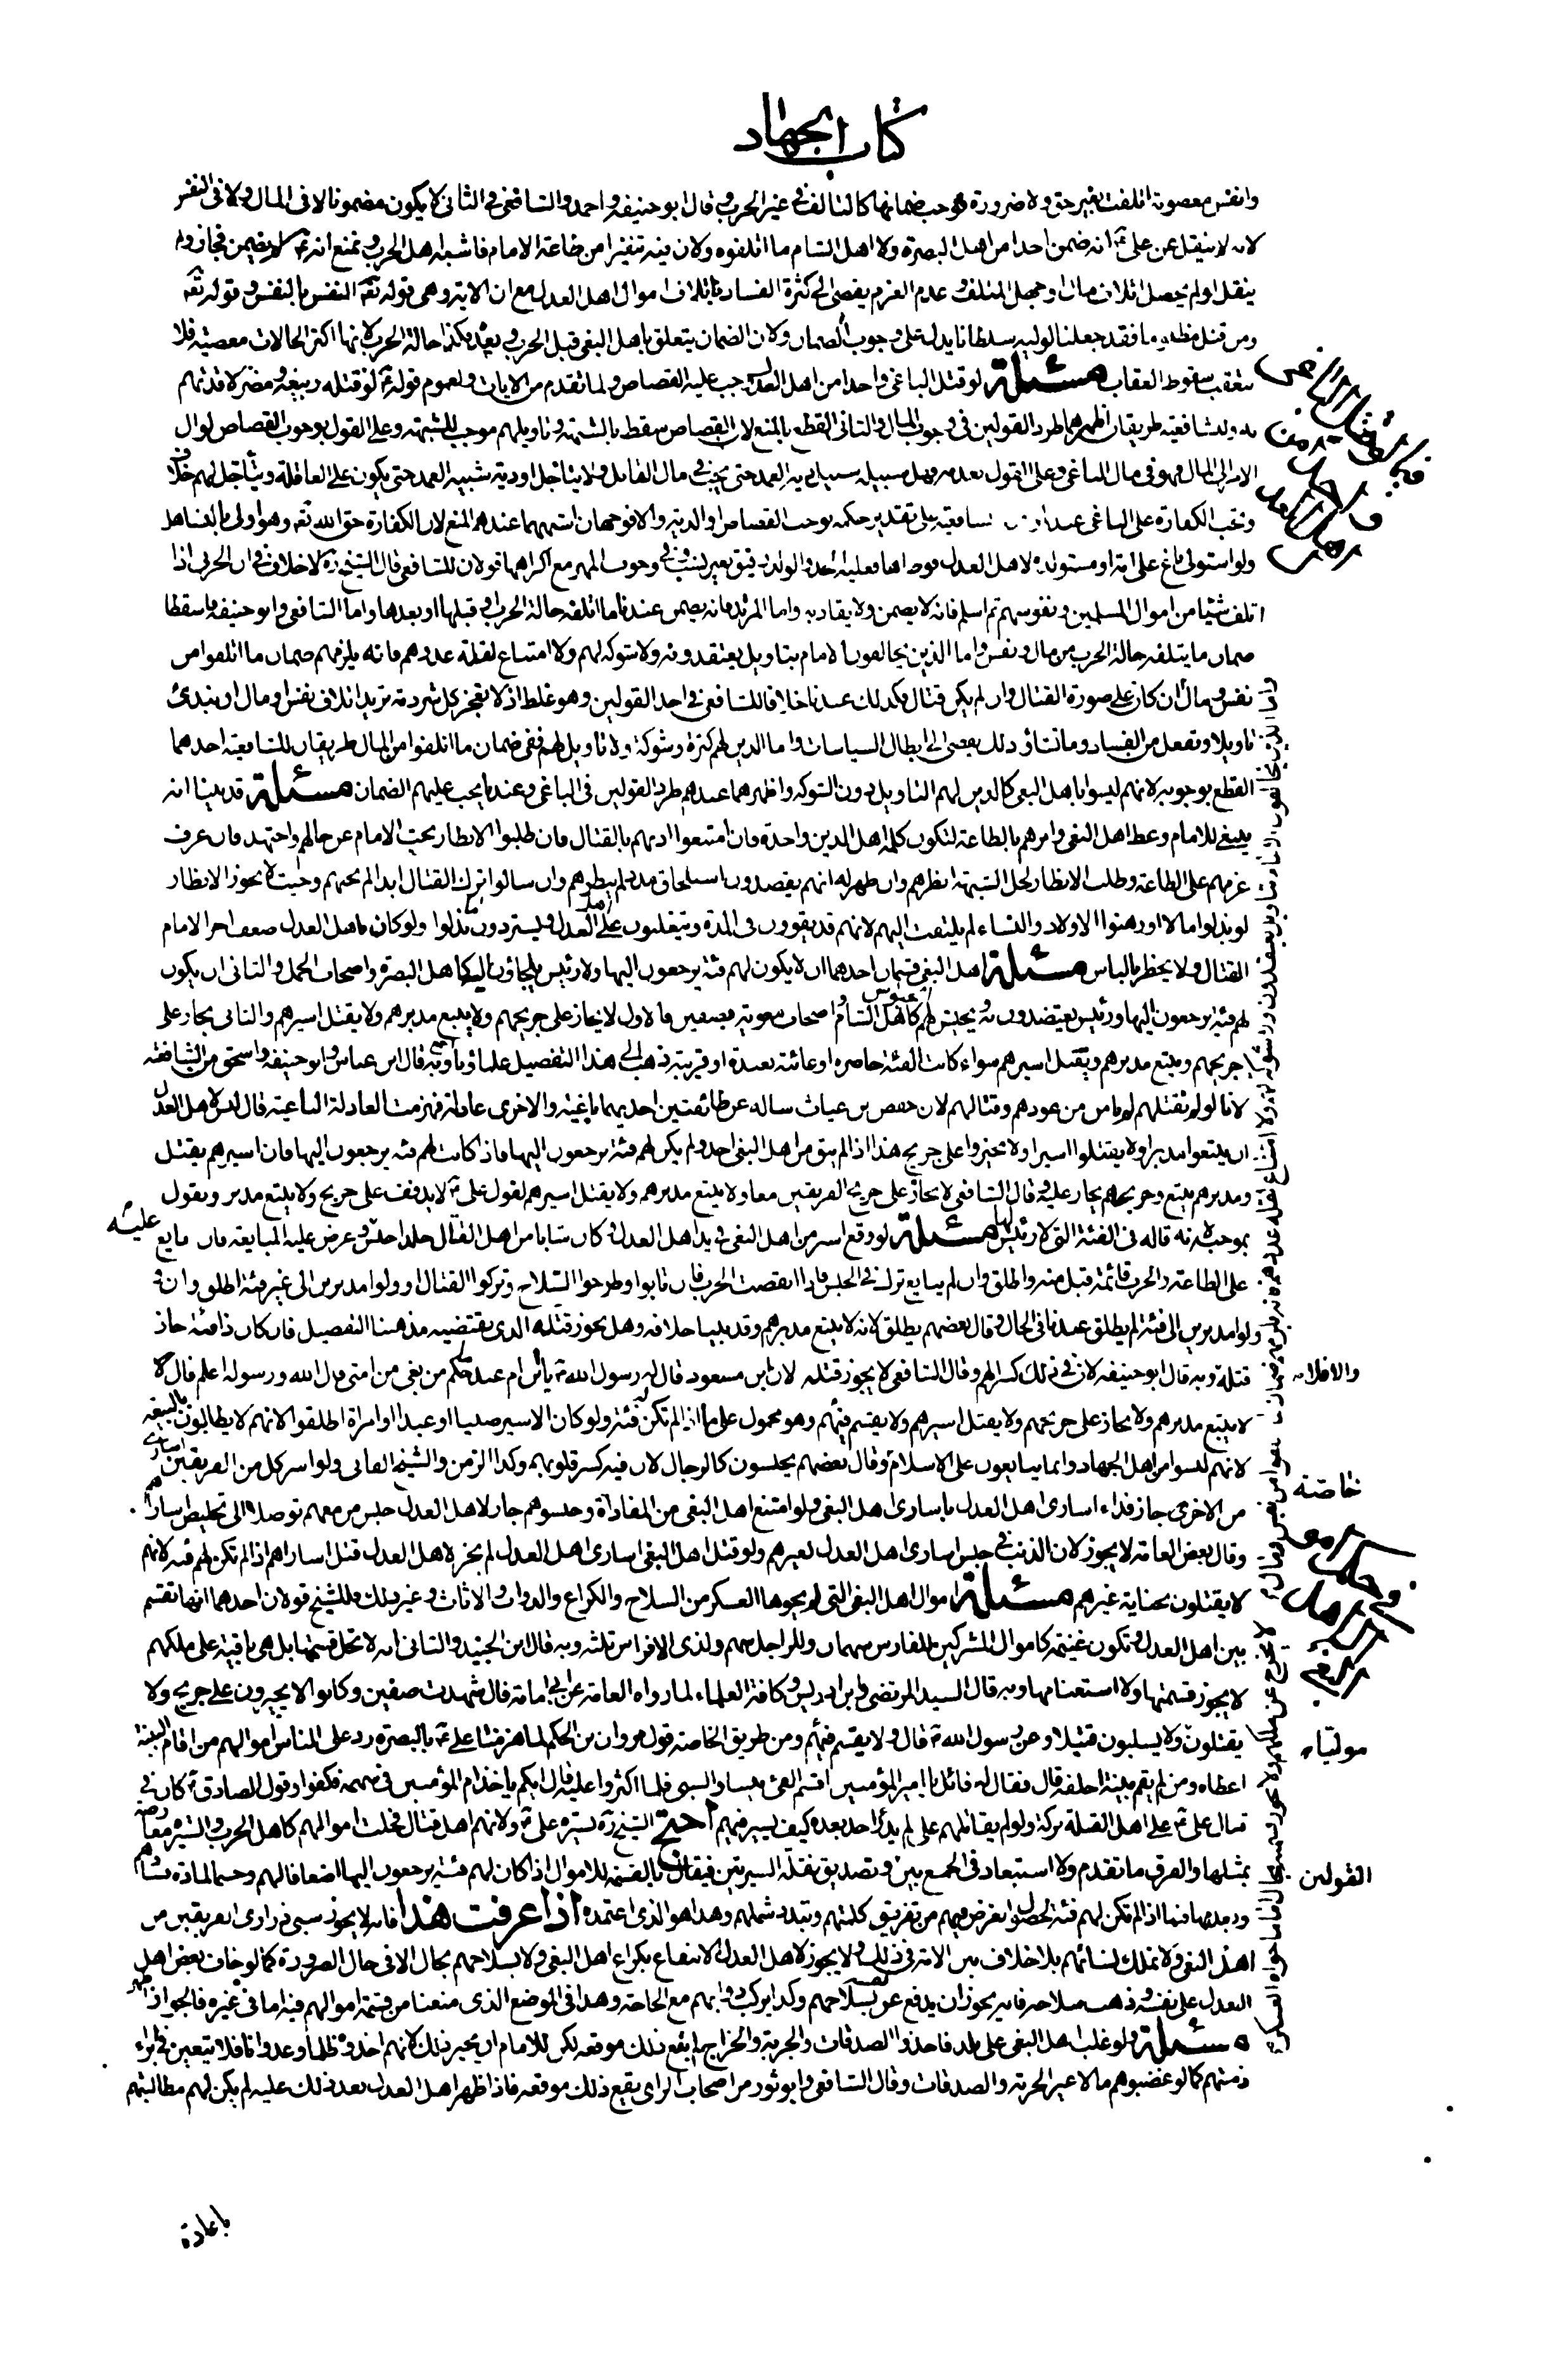 كتاب الجهاد
وانفس معصومة اتلفت بغير حق ولا ضرورة فوجب ضمانها كالتالف في غير الحرب وقال ابو حنيفة واحمد والشافعي في الثاني لا يكون مضمونا لا في المال ولا في النفس
لانه لم ينقل عن علي ع انه ضمن احدا من اهل البصرة ولا اهل الشام ما اتلفوه ولان فيه تنفيرا من طاعة الامام فاشبه اهل الحرب ونمنع انه ع لم يضمن فجاز ولم
ينقل او لم يحصل اتلاف مال او جهل المتلف وعدم الغرم يفضي الى كثرة الفساد باتلاف اموال اهل العدل مع ان الاية وهي قوله تع النفس بالنفس وقوله تع
ومن قتل مظلوما فقد جعلنا لوليه سلطانا يدل على وجوب الضمان ولان الضمان يتعلق باهل البغي قبل الحرب وبعده فكذا حالة الحرب لانها اكثر الحالات معصية فلا
يتعقب سقوط العقاب مسئلة لو قتل الباغي واحدا من اهل العدل وجب عليه القصاص ولما تقدم من الايات ولعموم قوله ع لو قتله ربيعة ومضر لاقدتهم
به وللشافعية طريقان اظهرهما طرد القولين في وجوب المال والثاني القطع بالمنع لان القصاص سقط بالشبهة وتاويلهم موجب للشبهة وعلى القول بوجوب القصاص لو ال
الامر الى المال فهو في مال الباغي وعلى القول بعدمه فهل سبيله سبيل دية العمد حتى يجب في مال القاتل ولا يتاجل او دية شبيه العمد حتى يكون على العاقلة ويتأجل لهم خلاف
وتجب الكفارة على الباغي عندنا وعند الشافعية على تقدير حكمه بوجب القصاص او الدية والا فوجهان اشبههما عندهم المنع لان الكفارة حق الله تع وهو اولى بالتساهل
ولو استولى باغ على امة او مستولدة لاهل العدل فوطئها فعليه الحد والولد رقيق بغير نسب وفي وجوب المهر مع اكراهها قولان للشافعي قال الشيخ ره لا خلاف في ان الحربي اذا
اتلف شيئا من اموال المسلمين ونفوسهم ثم اسلم فانه لا يضمن ولا يقاد به واما المرتد فانه يضمن عندنا ما اتلفه حالة الحرب او قبلها او بعدها واما الشافعي وابو حنيفة فاسقطا
ضمان ما يتلفه حالة الحرب من مال ونفس واما الذين يخالفون الامام بتاويل يعتقدونه ولا شوكة لهم ولا امتناع لقلة عددهم فانه يلزمهم ضمان ما اتلفوا من
نفس ومال ان كان على صورة القتال وان لم يكن قتال فكذلك عندنا خلافا للشافعي في احد القولين وهو غلط اذ لا يعجز كل شرذمة تريد اتلاف نفس او مال ان يبدي
تاويلا وتفعل من الفساد وما تشاؤ ذلك يفضي الى ابطال السياسات واما الذين لهم كثرة وشوكة ولا تاويل لهم ففي ضمان ما اتلفوا من المال طريقان للشافعية احدهما
القطع بوجوبه لانهم ليسوا باهل البغي كالذين لهم التاويل دون الشوكة واظهرهما عندهم طرد القولين في الباغي وعندنا يجب عليهم الضمان مسئلة قد بينا انه
ينبغي للامام وعظ اهل البغي وامرهم بالطاعة لتكون كلمة اهل الدين واحدة فان امتنعوا اذنهم بالقتال فان طلبوا الانظار بحث الامام عن حالهم واجتهد فان عرف
عزمهم على الطاعة وطلب الانظار لحل الشبهة انظرهم وان ظهر له انهم يقصدون استلحاق مدد لم ينظرهم وان سالوا ترك القتال ابدا لم يجبهم وحيث لا يجوز الانظار
لو بذلوا مالا او رهنوا الاولاد والنساء لم يلتفت اليهم لانهم قد يقوون في المدة ويتغلبون على اهل العدل ويستردون ما بذلوا ولو كان باهل العدل ضعف اخر الامام
القتال ولا يخطر بالناس مسئلة اهل البغي قسمان احدهما ان لا يكون لهم فئة يرجعون اليها ولا رئيس يلجاؤن اليه كاهل البصرة واصحاب الجمل والثاني ان يكون
لهم فئة يرجعون اليها ورئيس يعتضدون به ويجيش لهم الجيوش كاهل الشام واصحاب معوية بصفين فالاول لا يجاز على جريحهم ولا يتبع مدبرهم ولا يقتل اسيرهم والثاني يجاز على
جريحهم ويتبع مدبرهم ويقتل اسيرهم سواء كانت الفئة حاضرة او غائبة بعيدة او قريبة ذهب الى هذا التفصيل علماؤنا اجمع وبه قال ابن عباس وابو حنيفة واسحق من الشافعية
لانا لو لم نقتلهم لم نامن من عودهم وقتالهم لان حفص بن غياث ساله عن طائفتين احديهما باغية والاخرى عادلة فهزمت العادلة الباغية قال ليس لاهل العدل
ان يتبعوا مدبرا ولا يقتلوا اسيرا ولا يجيزوا على جريح هذا اذا لم يبق من اهل البغي احد ولم يكن لهم فئة يرجعون اليها فاذا كانت لهم فئة يرجعون اليها فان اسيرهم يقتل
ومدبرهم يتبع وجريحهم يجاز عليه وقال الشافعي لا يجاز على جريح الفريقين معا ولا يتبع مدبرهم ولا يقتل اسيرهم لقول علي ع لا يدفف على جريح ولا يتبع مدبر ونقول
بموجبه لانه قاله في الفئة التي لا رئيس لها مسئلة لو وقع اسير من اهل البغي في يد اهل العدل وكان شابا من اهل القتال جلدا حبس وعرض عليه المبايعة فان بايع
عليه
على الطاعة والحرب قائمة قبل منه واطلق وان لم يبايع ترك في الحبس فاذا انقضت الحرب فان تابوا وطرحوا السلاح وتركوا القتال او ولوا مدبرين الى غير فئة اطلق وان
ولوا مدبرين الى فئة لم يطلق عندنا في الحال وقال بعضهم يطلق لانه لا يتبع مدبرهم وقد بينا خلافه وهل يجوز قتله الذي يقتضيه مذهبنا التفصيل فان كان ذا فئة جاز
قتله وبه قال ابو حنيفة لان في ذلك كسرا لهم وقال الشافعي لا يجوز قتله لان ابن مسعود قال له رسول الله ص يا بن ام عبد ما حكم من بغى من امتي قال الله ورسوله اعلم فال لا
والا فلا
لا يتبع مدبرهم ولا يجاز على جريحهم ولا يقتل اسيرهم ولا يقسم فيئهم وهو محمول على ما اذا لم تكن له فئة ولو كان الاسير صبيا او عبدا او امراة اطلقوا لانهم لا يطالبون بالبيعة
لانهم ليسوا من اهل الجهاد وانما يبايعون على الاسلام وقال بعضهم يحبسون كالرجال لان فيه كسر قلوبهم وكذا الزمن والشيخ الفاني ولو اسر كل من الفريقين اسارى
من الاخرى جاز فداء اسارى اهل العدل باسارى اهل البغي ولو امتنع اهل البغي من المفاداة وحبسوهم جاز لاهل العدل حبس من معهم توصلا الى تخليص اساراهم
خاصة
وقال بعض العامة لا يجوز لان الذنب في حبس اسارى اهل العدل لغيرهم ولو قتل اهل البغي اسارى اهل العدل لم يجز لاهل العدل قتل اساراهم اذا لم تكن لهم فئة لانهم
لا يقتلون بجناية غيرهم مسئلة اموال اهل البغي التي لم يحوها العسكر من السلاح والكراع والدواب والاثاث وغير ذلك وللشيخ قولان احدهما انها تقسم
بين اهل العدل وتكون غنيمة كاموال المشركين للفارس سهمان وللراجل سهم ولذي الافراس ثلثة وبه قال ابن الجنيد والثاني انه لا تحل قسمتها بل هي باقية على ملكهم
لا يجوز قسمتها ولا استغنامها وبه قال السيد المرتضى وابن ادريس وكافة العلماء لما رواه العامة عن ابي امامة قال شهدت صفين وكانوا لا يجيزون على جريح ولا
يقتلون موليا ولا يسلبون قتيلا وعن رسول الله ص قال ولا يقسم فيئهم ومن طريق الخاصة قول مروان بن الحكم لما هزمنا علي ع بالبصرة رد على الناس اموالهم من اقام البينة
اعطاه ومن لم يقم بينة احلفه قال فقال له قائل يا امير المؤمنين اقسم الفئ بيننا والسبي فلما اكثروا عليه قال ايكم ياخذ ام المؤمنين في سهمه فكفوا وقول الصادق ع كان في
قتال علي ع على اهل القبلة بركة ولو لم يقاتلهم علي لم يدر احد بعده كيف يسير فيهم احتج الشيخ ره بسيرة علي ع ولانهم اهل قتال فحلت اموالهم كاهل الحرب والسيرة معارضة
بمثلها والفرق ما تقدم ولا استبعاد في الجمع بين القولين وتصديق نقلة السيرتين فيقال بالقسمة للاموال اذا كان لهم فئة يرجعون اليها اضعافا لهم وحسما لمادة فسادهم
وبعدمها فيما اذا لم تكن لهم فئة لحصول الغرض فيهم من تفريق كلمتهم وتبدد شملهم وهذا هو الذي اعتمده اذا عرفت هذا فانه لا يجوز سبي ذراري الفريقين من
اهل البغي ولا تملك نسائهم بلا خلاف بين الامة في ذلك ولا يجوز لاهل العدل الانتفاع بكراع اهل البغي ولا بسلاحهم بحال الا في حال الضرورة كما لو خاف بعض اهل
العدل على نفسه وذهب سلاحه فانه يجوز ان يدفع عن نفسه بسلاحهم وكذا يركب دوابهم مع الحاجة وهذا في الموضع الذي منعنا من قسمة اموالهم فيه اما في غيره فالجواز اظهر
مسئلة ولو غلب اهل البغي على بلد فاخذوا الصدقات والجزية والخراج لم يقع ذلك موقعه لكن للامام ان يجيز ذلك لانهم اخذوه ظلما وعدوانا فلا يتعين في براءة
ذمتهم كما لو غصبوهم مالا غير الجزية والصدقات وقال الشافعي وابو ثور من اصحاب الراي يقع ذلك موقعه فاذا ظهر اهل العدل بعد ذلك عليه لم يكن لهم مطالبتهم
باعادة
فيما لو قتل الباغي واحدا من اهل العدل
في حكم اموال اهل البغي